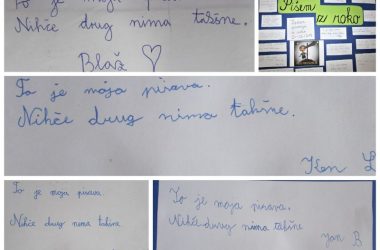 To je moja pisava.
Nihče drug nima takšne.
Blaž ♡
Pišem
z roko
To je moja pisava.
Nihče drug nima takšne.
Ken L
To je moja pisava.
Nihče drug nima takšne.
To je moja pisava.
Nihče drug nima takšne
Jan B.